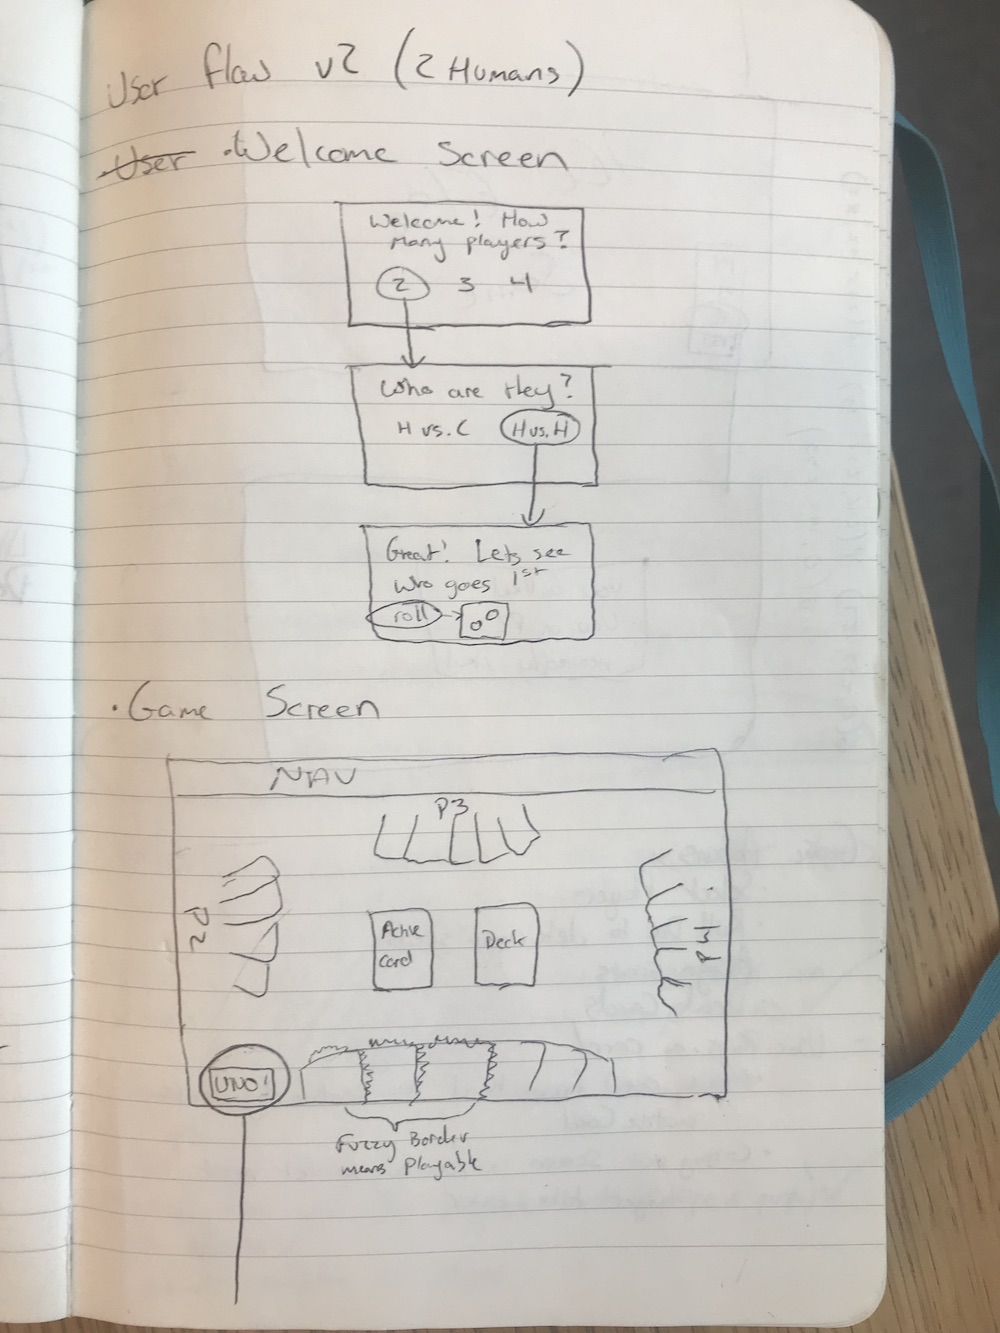 User flow v2 (2 Humans)
User • Welcome Screen
Welcome! How
many players?
2 3 4
Who are they?
H vs. C H vs. H
Great! Lets see
who goes 1st
roll
• Game Screen
NAV
P3
P2
P4
Active
Card
Deck
UNO!
Fuzzy Border
means Playable